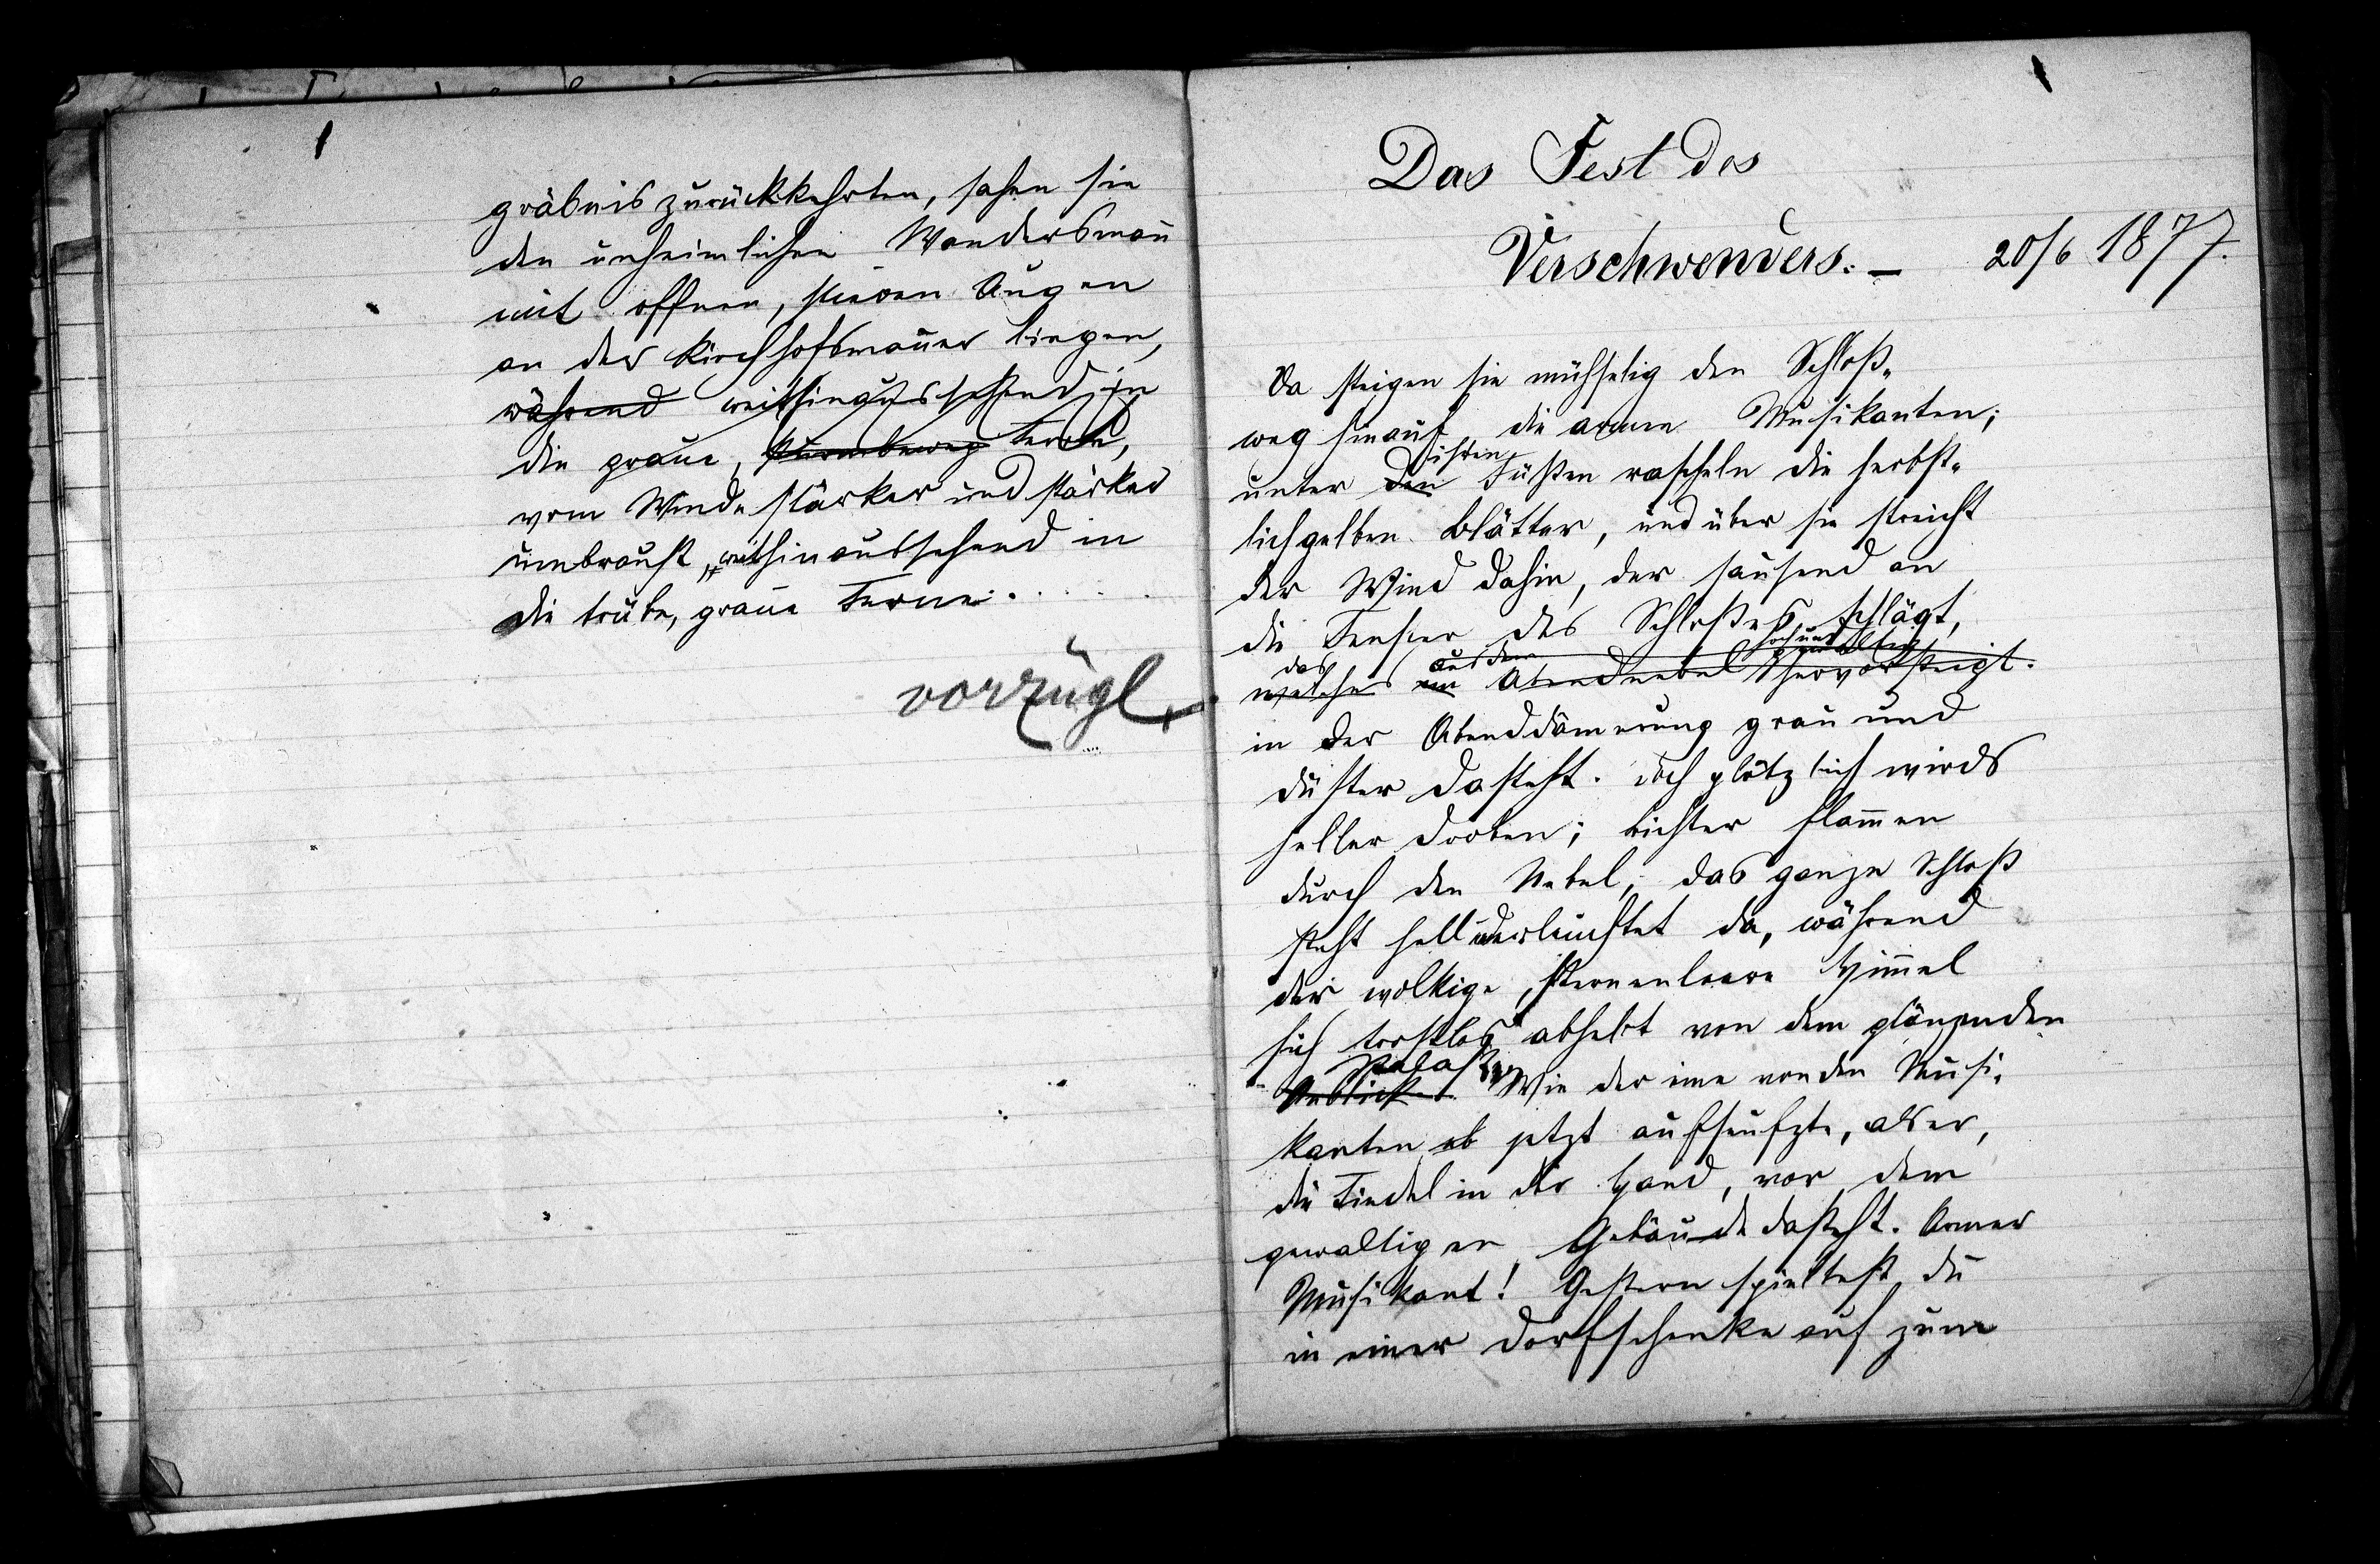 gräbnis zurückkehrten, sahen sie
den unheimlichen Wandersmañ
mit offnen, stieren Augen
an der Kirchhofsmauer liegen,
während weithinaussehend in
die graue, Ferne,
vom Winde stärker und stärker
umbraust, weithinaussehend in
die trübe, graue Ferne. . . . .
vorzügl.
Das Fest des
Verschwenders. — 20/6 1877.
Da steigen sie mühselig den Schloß„
weg hinauf die armen Musikanten;
ihren
unter den Füßen rascheln die herbst„
lichgelben Blätter, und über sie streicht
der Wind dahin, der sausend an
die Fenster des Schloßes schlägt,
das aus dem
welches im Abendnebel hervorsteigt.
in der Abenddäm̄erung grau und
düster dasteht. Doch plötzlich wirds
heller droben; Lichter flam̄en
durch den Nebel; das ganze Schloß
steht hell erleuchtet da, während
der wolkige, sternenleere Him̄el
sich trostlos abhebt von dem glänzenden
Palaste.
Anblick. Wie der eine von den Musi„
kanten ob jetzt aufseufzte, als er,
die Fiedel in der Hand, vor dem
gewaltigen Gebäude dasteht. Armer
Musikant! Gestern spieltest du
in einer Dorfschenke auf zum